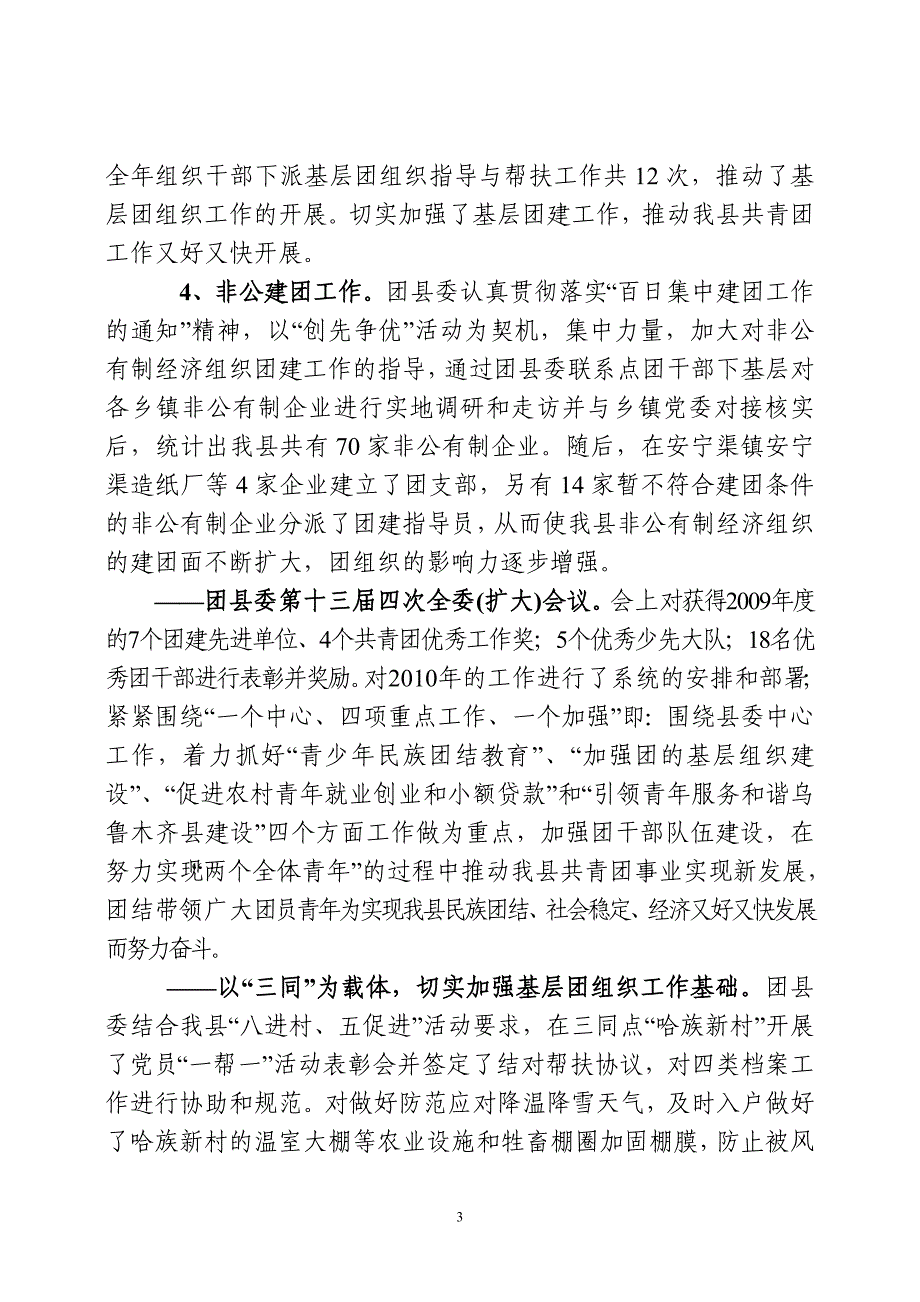 全年组织干部下派基层团组织指导与帮扶工作共 12 次，推动了基
层团组织工作的开展。切实加强了基层团建工作，推动我县共青团
工作又好又快开展。
4、非公建团工作。团县委认真贯彻落实“百日集中建团工作
的通知”精神，以“创先争优”活动为契机，集中力量，加大对非公
有制经济组织团建工作的指导，通过团县委联系点团干部下基层对
各乡镇非公有制企业进行实地调研和走访并与乡镇党委对接核实
后，统计出我县共有 70 家非公有制企业。随后，在安宁渠镇安宁
渠造纸厂等 4 家企业建立了团支部，另有 14 家暂不符合建团条件
的非公有制企业分派了团建指导员，从而使我县非公有制经济组织
的建团面不断扩大，团组织的影响力逐步增强。
——团县委第十三届四次全委(扩大)会议。会上对获得2009年度
的7个团建先进单位、4个共青团优秀工作奖；5个优秀少先大队；18名优
秀团干部进行表彰并奖励。对2010年的工作进行了系统的安排和部署；
紧紧围绕“一个中心、四项重点工作、一个加强”即：围绕县委中心
工作，着力抓好“青少年民族团结教育”、“加强团的基层组织建
设”、“促进农村青年就业创业和小额贷款”和“引领青年服务和谐乌
鲁木齐县建设”四个方面工作做为重点，加强团干部队伍建设，在
努力实现“两个全体青年”的过程中推动我县共青团事业实现新发展，
团结带领广大团员青年为实现我县民族团结、社会稳定、经济又好又快发展
而努力奋斗。
——以“三同”为载体，切实加强基层团组织工作基础。团县
委结合我县“八进村、五促进”活动要求，在三同点“哈族新村”开展
了党员“一帮一”活动表彰会并签定了结对帮扶协议，对四类档案工
作进行协助和规范。对做好防范应对降温降雪天气，及时入户做好
了哈族新村的温室大棚等农业设施和牲畜棚圈加固棚膜，防止被风
3